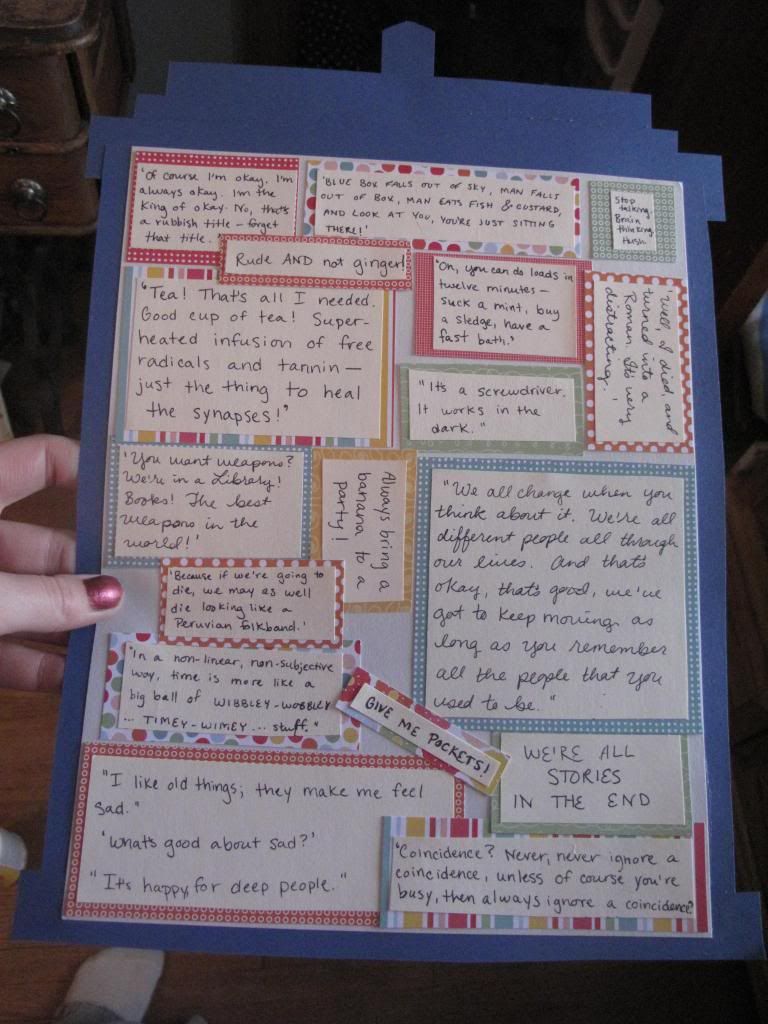 'Of course I'm okay. I'm
always okay. I'm the
King of okay. No, that's
a rubbish title - forget
that title.
'BLUE BOX FALLS OUT OF SKY, MAN FALLS
OUT OF BOX, MAN EATS FISH & CUSTARD,
AND LOOK AT YOU, YOU'RE JUST SITTING
THERE!'
Stop
talking.
Brain
thinking.
Hush.
Rude AND not ginger!
'Oh, you can do loads in
twelve minutes -
suck a mint, buy
a sledge, have a
fast bath.'
'well I died, and
turned into a
Roman. It's very
distracting.'
"Tea! That's all I needed.
Good cup of tea! Super-
heated infusion of free
radicals and tannin -
just the thing to heal
the synapses!"
"It's a screwdriver.
It works in the
dark."
'You want weapons?
We're in a Library!
Books! The best
weapons in the
world!'
Always bring a
banana to a
party!
"We all change when you
think about it. We're all
different people all through
our lives. And that's
okay, that's good, we've
got to keep moving as
long as you remember
all the people that you
used to be."
'Because if we're going to
die, we may as well
die looking like a
Peruvian folkband.'
"In a non-linear, non-subjective
way, time is more like a
big ball of WIBBLEY-WOBBLEY
... TIMEY-WIMEY... stuff."
GIVE ME POCKETS!
WE'RE ALL
STORIES
IN THE END
"I like old things; they make me feel
sad."
'What's good about sad?'
"It's happy for deep people."
'Coincidence? Never, never ignore a
coincidence, unless of course you're
busy, then always ignore a coincidence.'